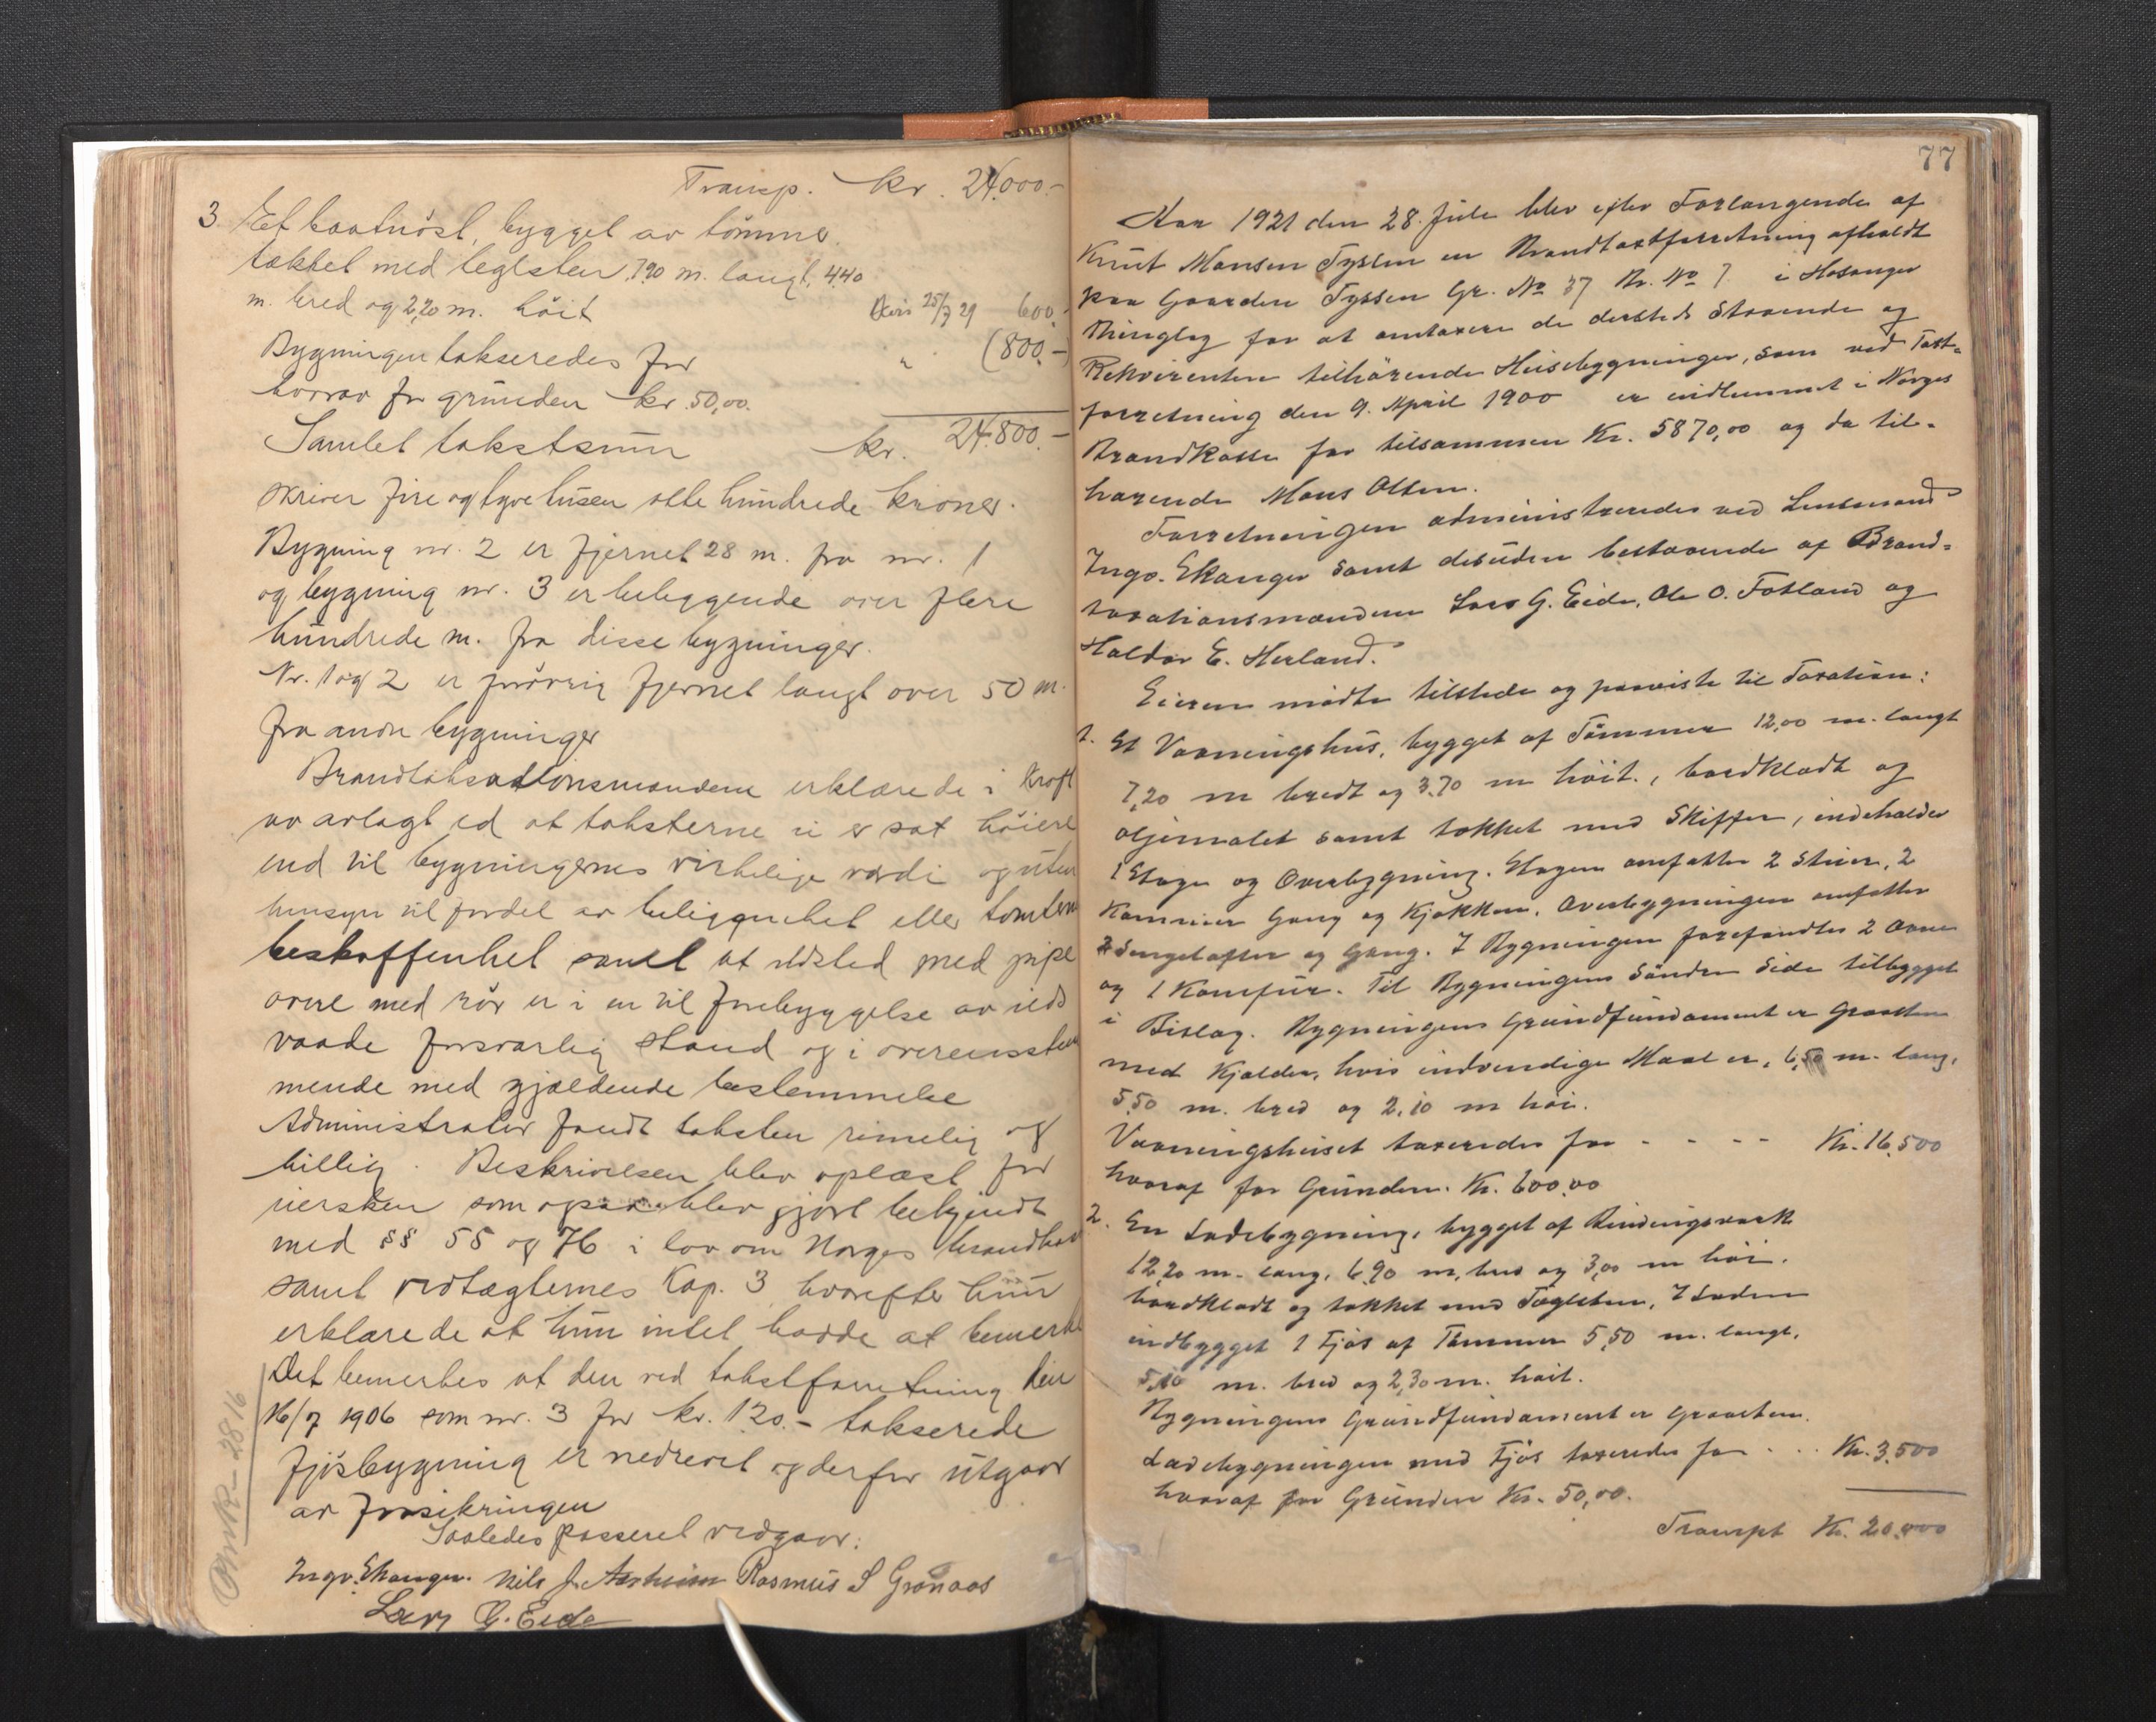 Transp. kr. 24.000.-
3. Et baatnöst, bygget av tömmer
tækket med teglsten 7,90 m. langt, 4,40
m. bred og 2,20 m. höit
Revis 25/7 29 600.-
Bygningen takseredes for " (800.-)
hvorav for grunden kr. 50,00.
Samlet takstsum kr. 24.800.-
skriver fire og tyve tusen otte hundrede kroner.
Bygning nr. 2 er fjernet 28 m. fra nr. 1
og bygning nr. 3 er beliggende over flere
hundrede m. fra disse bygninger.
Nr. 1 og 2 er forövrig fjernet langt over 50 m.
fra andre bygninger
Brandtaksationsmændene erklærede i kraft
av avlagt ed at taksterne ei er sat höiere
end til bygningernes virkelige værdi og uten
hensyn til fordel av beliggenhet eller tomtens
beskaffenhet samt at ildsted med pipe
ovne med rör er i en til forebyggelse av ilds
vaade forsvarlig stand og i overensstem
mende med gjældende bestemmelse
Administrator fandt taksten rimelig og
billig. Beskrivelsen blev oplæst for
eiersken som ogsaa blev gjort bekjendt
med §§ 55 og 76 i lov om Norges brandkas
samt vedtægternes Kap. 3 hvorefter hun
erklærede at hun intet hadde at bemerke
Det bemerkes at den ved takstforretning den
16/7 1906 som nr. 3 for kr. 120.- takserede
fjösbygning er nedrevet og derfor utgaar
av forsikringen
Saaledes passeret vedgaar:
Ingv. Ekanger. Nils J. Rasmus S Grønaas
Lars G. Eide
2816
77
Aar 1921 den 28. Juli blev efter Forlangende af
Knut Monsen Tyssen en Brandtaxtforretning afholdt
paa Gaarden Tyssen Gr. No 37 Br. No 7 i Hosanger
Thinglag for at omtaxere de dersteds staaende og
Rekvirenten tilhørende Husebygninger, som ved Taxt-
forretning den 9. April 1900 er indlemmet i Norges
Brandkasse for tilsammen Kr. 5870,00 og da til-
hørende Mons Olsen.
Forretningen administreredes ved Lensmand
Ingv. Ekanger samt desuden bestaaende af Brand-
taxationsmændene Lars G. Eide, Ole O. Fotland og
Haldor E. Herland.
Eieren mødte tilstede og paaviste til Taxation:
1. Et Vaaningshus, bygget af Tömmer 12,00 m. langt
7,20 m bredt og 3,70 m höit., bordklædt og
oljemalet samt tækket med Skiffer, indeholder
1 Etage og Overbygning. Etagen omfatter 2 Stuer, 2
Kammer Gang og Kjøkken. Overbygningen omfatter
2 Sengelofter og Gang. I Bygningen forefandtes 2 Ovne
og 1 Komfur. Til Bygningens Søndre Side tilbygget
i Bislag. Bygningens Grundfundament er Graasten
med Kjælder, hvis indvendige Maal er, 6,50 m. lang,
5,50 m. bred og 2,10 m höi.
Vaaningshuset taxeredes for - - - - Kr. 16,500
hvoraf for Grunden. Kr. 600,00
2. En Ladebygning, bygget af Bindingsværk
12,20 m. lang, 6,90 m. bred og 3,00 m höi.
bordklædt og tækket med Tæglsten, I Laden
indbygget 1 Fjös af Tømmer 5,50 m. langt,
m. bred og 2,30 m. höit.
Bygningens Grundfundament er Graasten.
Ladebygningen med Fjös taxeredes for . . . Kr. 3,500
hvoraf for Grunden Kr. 50,00.
Transpt Kr. 20,000